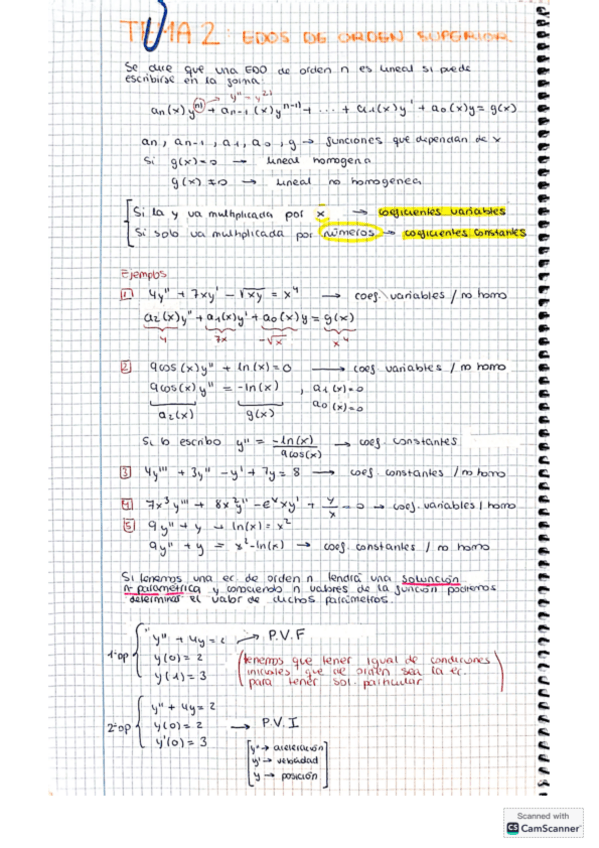 TEMA 2: EDOS DE ORDEN SUPERIOR
Se dice que una EDO de orden n es lineal si puede
escribirse en la forma:
y'' ≠ y²¹
an(x)y^(n) + an-1(x)y^(n-1) + ... + a1(x)y' + a0(x)y = g(x)
an, an-1, a1, a0, g → funciones que dependan de x
Si g(x)=0 → lineal homogena
g(x)≠0 → lineal no homogenea
Si la y va multiplicada por x → coeficientes variables
Si solo va multiplicada por números → coeficientes constantes
Ejemplos
1 4y'' + 7xy' - √xy = x⁴ → coef. variables / no homo
a2(x)y'' + a1(x)y' + a0(x)y = g(x)
4 7x -√x x⁴
2 9cos(x)y'' + ln(x)=0 → coef variables / no homo
9cos(x)y'' = -ln(x) , a1(x)=0
a2(x) g(x) a0(x)=0
Si lo escribo y'' = -ln(x)/9cos(x) → coef. constantes
3 4y''' + 3y'' - y' + 7y = 8 → coef. constantes / no homo
4 7x³y''' + 8x²y'' - eˣxy' + y/x = 0 → coef. variables / homo
5 9y'' + y + ln(x) = x²
9y'' + y = x² - ln(x) → coef. constantes / no homo
Si tenemos una ec. de orden n tendrá una solución
n-paramétrica y conociendo n valores de la función podremos
determinar el valor de dichos parámetros.
1ªop y'' + 4y = 2 → P.V.F
y(0) = 2
y(1) = 3
(tenemos que tener igual de condiciones
iniciales que de orden sea la ec.
para tener sol. particular)
2ªop y'' + 4y = 2
y(0) = 2 → P.V.I
y'(0) = 3
y'' → aceleración
y' → velocidad
y → posición
Scanned with
CS CamScanner